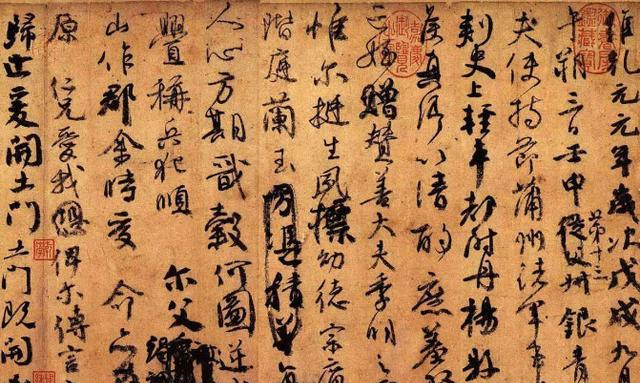 維乾元元年歲次戊戌九月
午朔三日壬申第十三從父銀青
夫使持節蒲州諸軍事
刺史上輕車都尉丹楊縣
侯真卿以清酌庶羞
亡姪贈贊善大夫季明之
惟爾挺生夙標幼德宗廟
階庭蘭玉方憑積善
人心方期戩穀何圖逆
釁稱兵犯順爾父
山作郡余時受命亦
原仁兄愛我俾爾傳言
歸止爰開土門土門既開